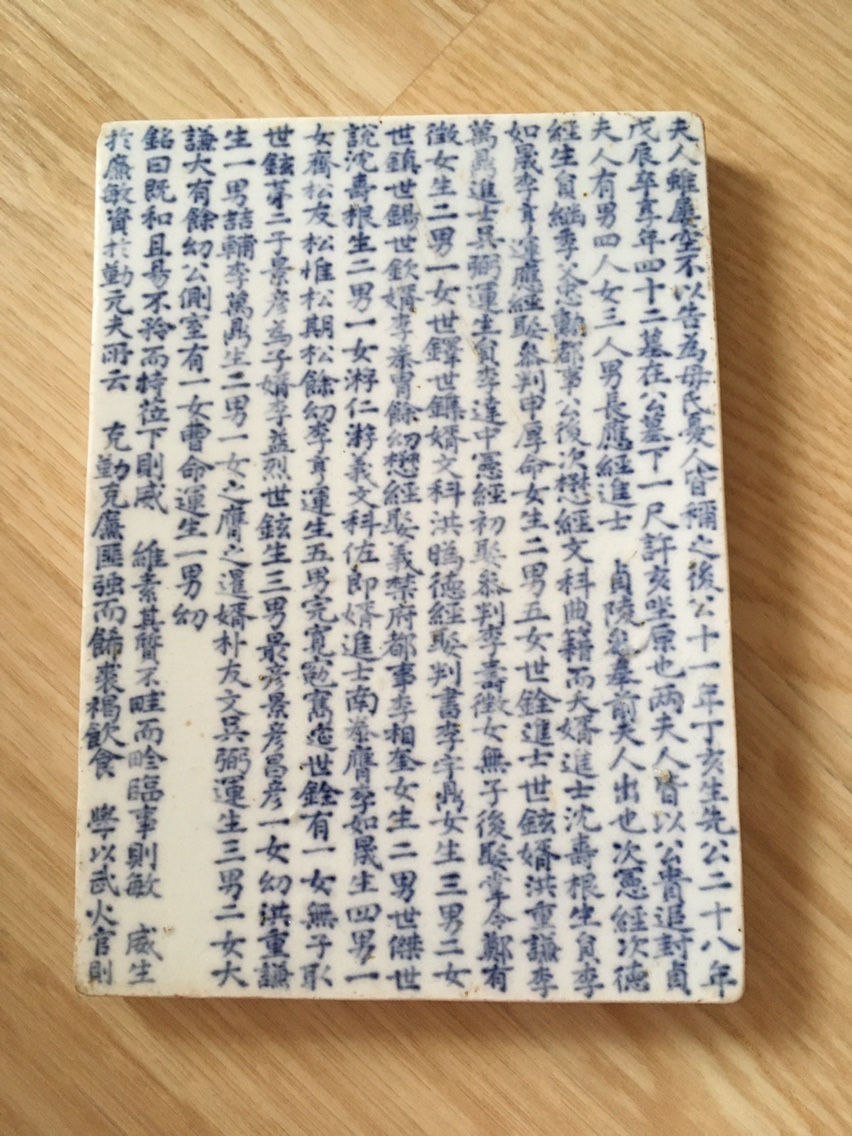 夫人雖屢空不以告為母氏憂人皆稱之後公十一年丁亥生先公二十八年
戊辰卒享年四十二墓在公墓下一尺許亥坐原也兩夫人皆以公貴追封貞
夫人有男四人女三人男長應經進士 貞陵參奉前夫人出也次憲經次德
經生員繼季父忠勳都事公後次懋經文科典籍而夭婿進士沈壽根生員李
如晟李亨運應經娶參判申厚命女生二男五女世銓進士世鉉婿洪重謙李
萬鼎進士吳弼運生員李達中憲經初娶參判李壽徵女無子後娶掌令鄭有
徵女生二男一女世鐸世鎮婿文科洪昫德經娶判書李宇鼎女生三男二女
世鎮世錫世欽婿李泰冑餘幼懋經娶義禁府都事李相奎女生二男世傑世
說沈壽根生二男一女游仁游義文科佐郎婿進士南泰膺李如晟生四男一
女齊松友松惟松期松餘幼李亨運生五男完寬勉寓 世銓有一女無子取
世鉉第二子景彥為子婿李益烈世鉉生三男最彥景彥昌彥一女幼洪重謙
生一男喆輔李萬鼎生二男一女之膺之暹婿朴友文吳弼運生三男二女大
謙大有餘幼公側室有一女曹命運生一男幼
銘曰既和且易不矜而持莅下則威 維素其質不畦而畛臨事則敏 威生
於廉敏資於勤元夫所云 克勤克廉匪強而飾裘褐飲食 學以武火官則